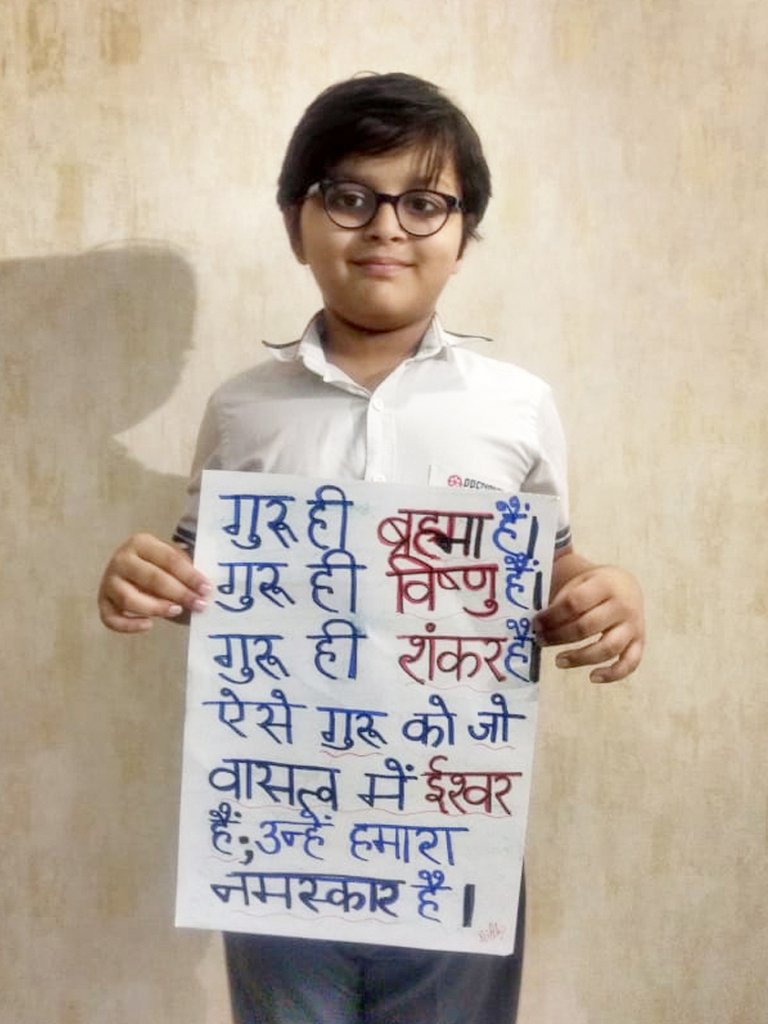 गुरू ही ब्रह्मा हैं।
गुरू ही विष्णु हैं।
गुरू ही शंकर हैं।
ऐसे गुरू को जो
वासत्व में ईश्वर
हैं; उन्हें हमारा
नमस्कार है।